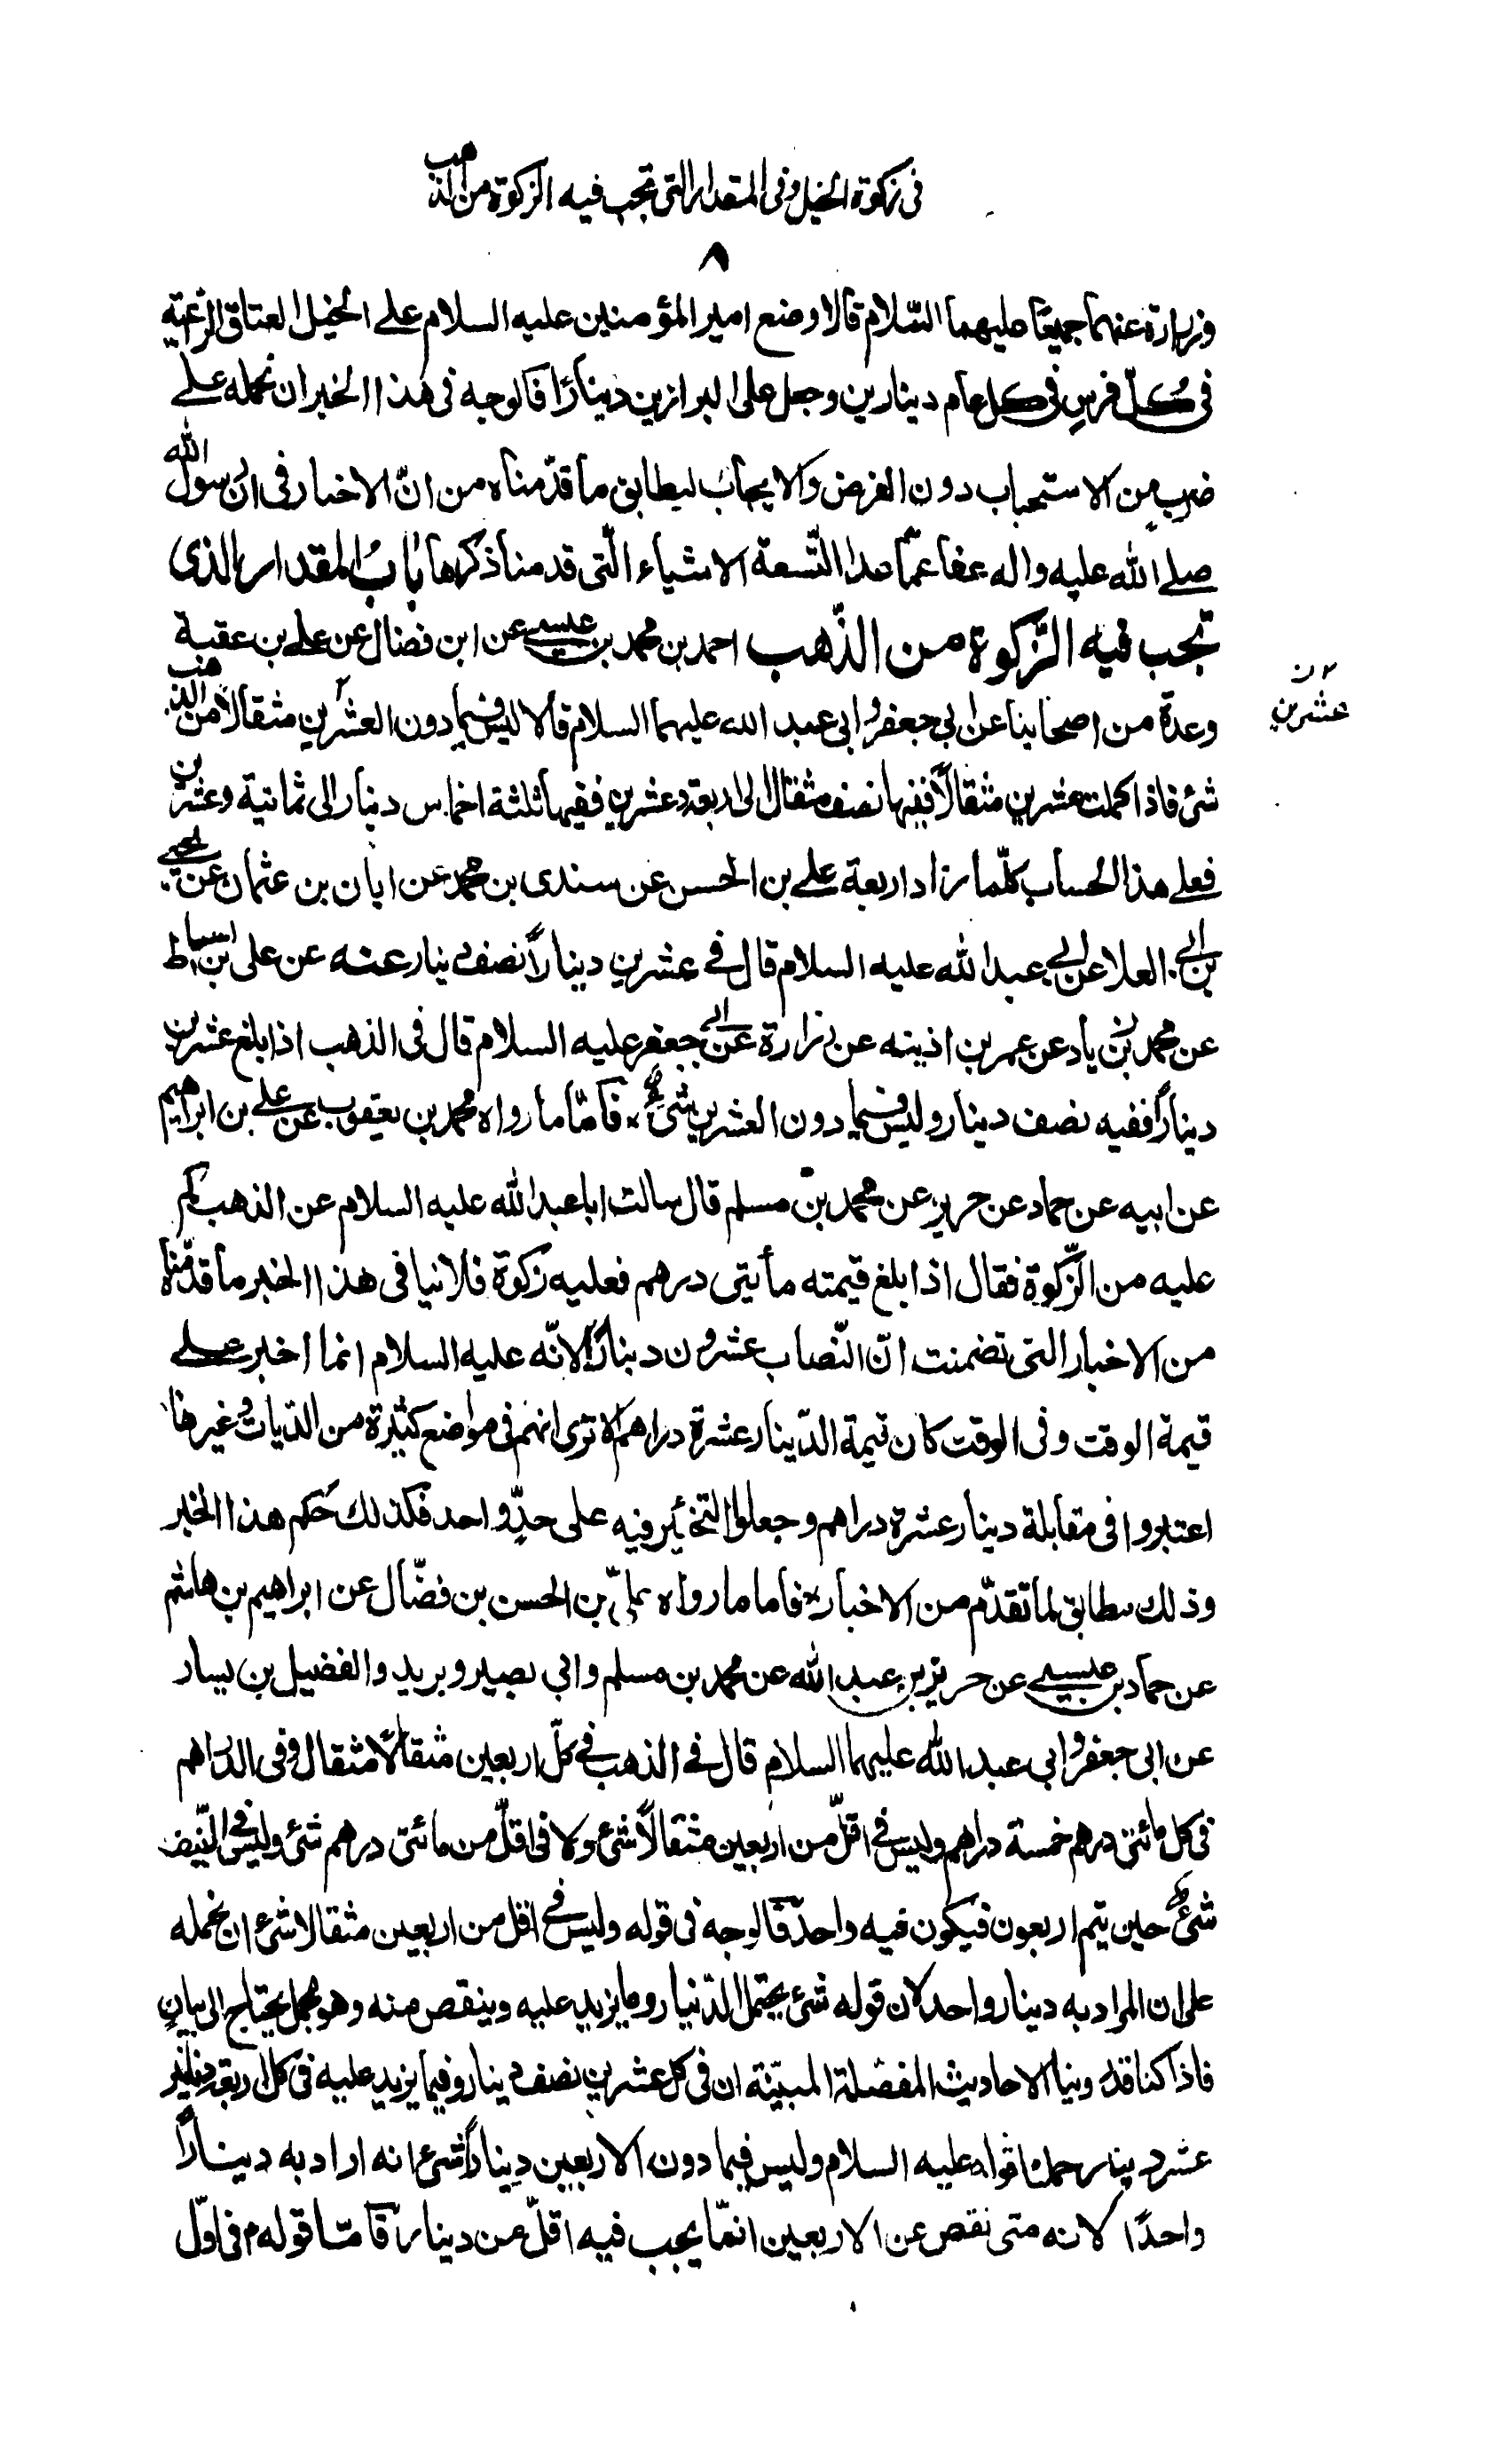 في زكوة الخيل وفي المقدار التي تجب فيه الزكوة من الذهب
٨
وزرارة عنهما جميعا عليهما السّلام قالا وضع امير المؤمنين عليه السلام على الخيل العتاق الراعية
في كلّ فرس في كل عام دينارين وجعل على البراذين دينارًا فالوجه في هذا الخبر ان نحمله على
ضرب من الاستحباب دون الفرض والايجاب ليطابق ما قدّمناه من انّ الاخبار في ان رسول الله
صلى الله عليه واله عفا عمّا عدا التّسعة الاشياء الّتي قدمنا ذكرها باب المقدار الذي
تجب فيه الزّكوة من الذّهب احمد بن محمد بن عيسى عن ابن فضال عن علي بن عقبة
وعدة من اصحابنا عن ابي جعفر وابي عبد الله عليهما السلام قالا ليس فيما دون العشرين مثقالا من الذهب
عشرين
شئ فاذا كملت عشرين مثقالاً ففيها نصف مثقال الى اربعة وعشرين ففيها ثلثة اخماس دينار الى ثمانية وعشرين
فعلى هذا الحساب كلّما زاد اربعة علي بن الحسن عن سندى بن محمد عن ابان بن عثمان عن يحيى
بن ابي العلا عن ابي عبد الله عليه السلام قال في عشرين دينارًا نصف دينار عنه عن على بن اسباط
عن محمد بن زياد عن عمر بن اذينه عن زرارة عن ابي جعفر عليه السلام قال في الذهب اذا بلغ عشرين
دينارًا ففيه نصف دينار وليس فيما دون العشرين شئ فامّا ما رواه محمد بن يعقوب عن علي بن ابراهيم
عن ابيه عن حماد عن حريز عن محمد بن مسلم قال سالت ابا عبد الله عليه السلام عن الذهب كم
عليه من الزّكوة فقال اذا بلغ قيمته مأيتى درهم فعليه زكوة فلا نيا في هذا الخبر ما قدّمناه
من الاخبار التي تضمنت انّ النّصاب عشرون دينارًا لانّه عليه السلام انما اخبر على
قيمة الوقت وفي الوقت كان قيمة الدّينار عشرة دراهم الا ترى انهم في مواضع كثيرة من الدّيات وغيرها
اعتبروا في مقابلة دينار عشرة دراهم وجعلوا التخيّير فيه على حدّ واحد فكذلك حكم هذا الخبر
وذلك مطابق لما تقدّم من الاخبار فاما ما رواه علىّ بن الحسن بن فضّال عن ابراهيم بن هاشم
عن حماد بن عيسى عن حريز بن عبد الله عن محمد بن مسلم وابي بصير وبريد والفضيل بن يسار
عن ابى جعفر وابى عبد الله عليهما السلام قال في الذهب في كلّ اربعين مثقالاً مثقال وفي الدراهم
في كل مائتى درهم خمسة دراهم وليس في اقلّ من اربعين مثقالاً شئ ولا في اقلّ من مائتى درهم شئ وليس في النّيف
شئ حين يتم اربعون فيكون فيه واحد فالوجه في قوله وليس في اقل من اربعين مثقالا شئ ان نحمله
على ان المراد به دينار واحد لان قوله شئ يحتمل الدّنيار وما يزيد عليه وينقص منه وهو مجمل يحتاج الى بيان
فاذا كنا قد روينا الاحاديث المفصّلة المبيّنة ان في كل عشرين نصف دينار وفيما يزيد عليه في كل اربعة دنانير
عشر دينار حملنا قوله عليه السلام وليس فيما دون الاربعين دينارًا شئ انه اراد به دينارًا
واحدًا لانه متى نقص عن الاربعين انمّا يجب فيه اقلّ من دينار فامّا قوله م في اوّل